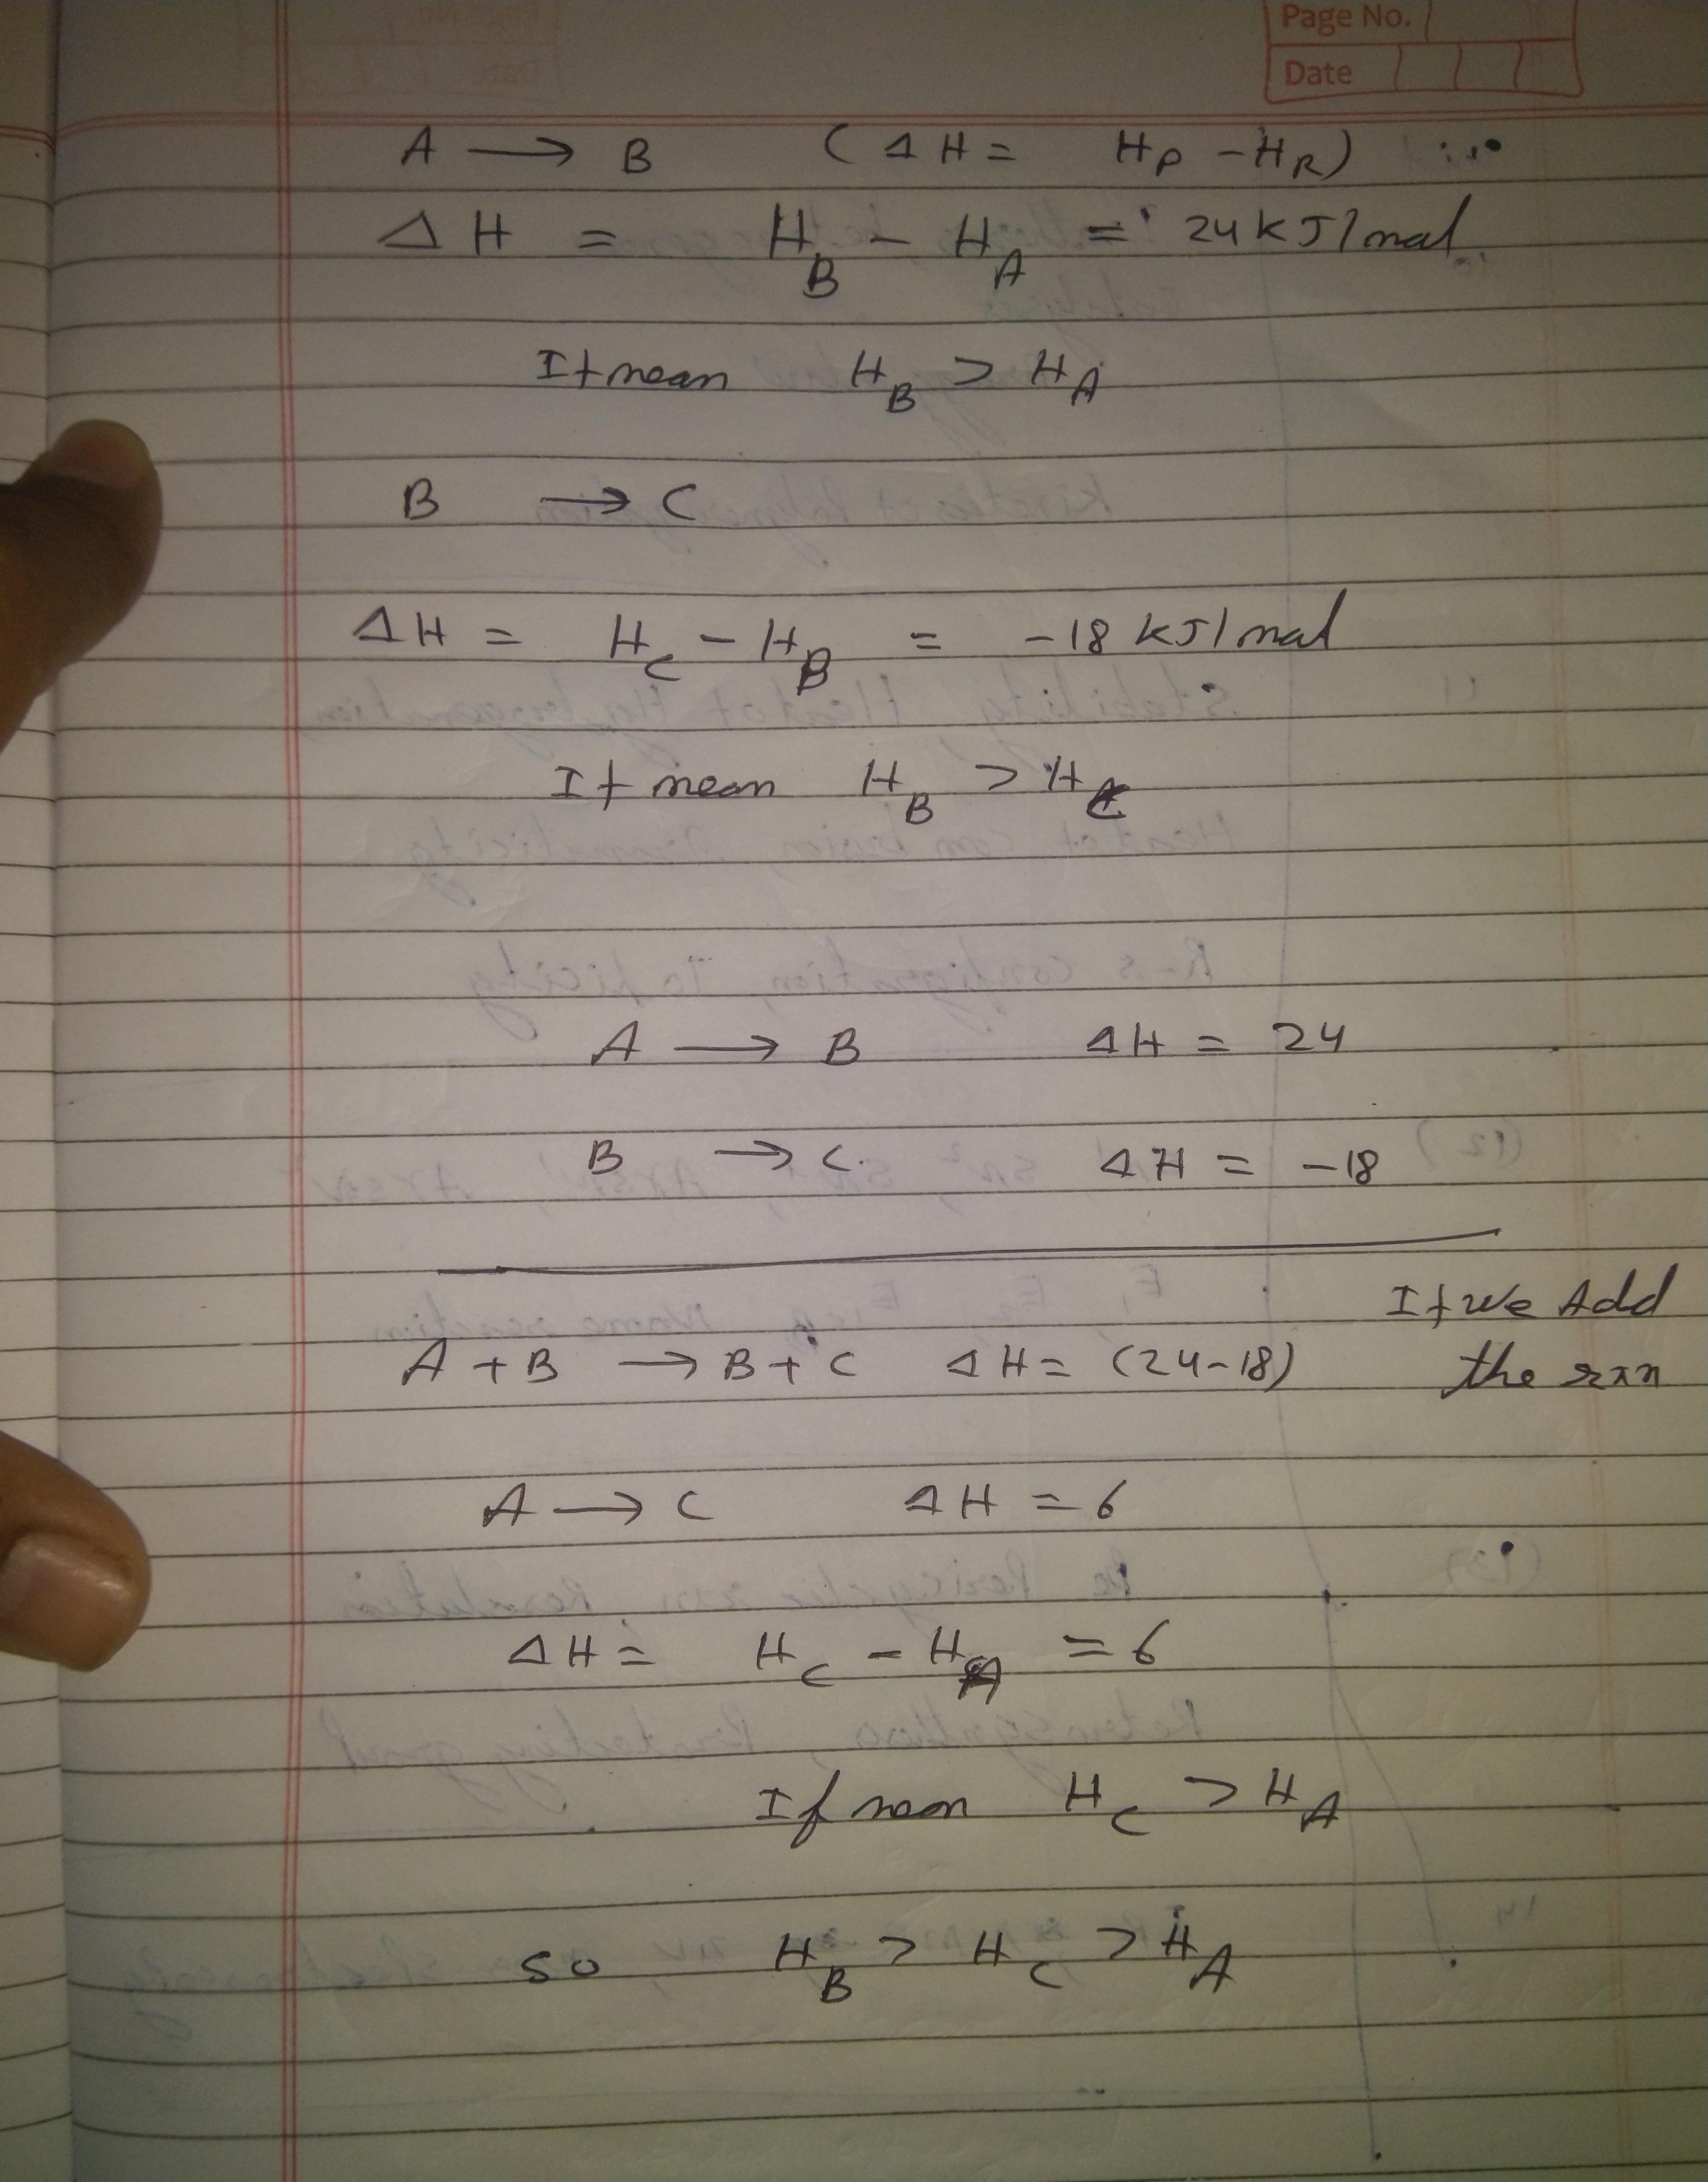 Page No.
Date
A → B (ΔH = H_P - H_R)
ΔH = H_B - H_A = 24 kJ/mol
It mean H_B > H_A
B → C
ΔH = H_C - H_B = -18 kJ/mol
It mean H_B > H_C
A → B ΔH = 24
B → C. ΔH = -18
If we Add
A + B → B + C ΔH = (24-18) the rxn
A → C ΔH = 6
ΔH = H_C - H_A = 6
If mean H_C > H_A
so H_B > H_C > H_A